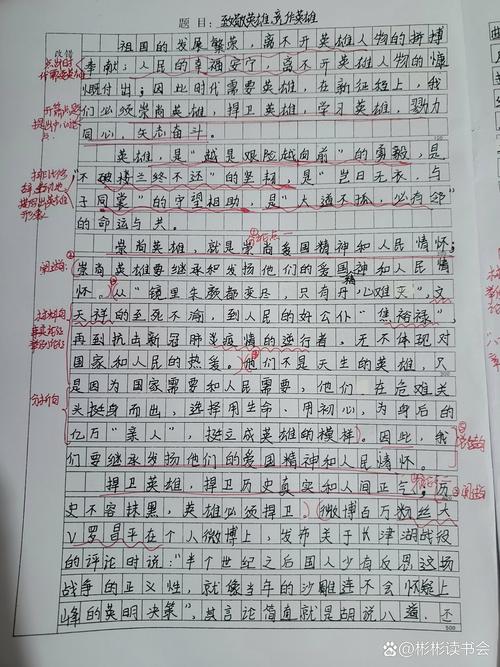 题目：致敬英雄，竞作英雄
祖国的发展繁荣，离不开英雄人物的拼搏
奉献；人民的幸福安宁，离不开英雄人物的慷
慨付出；因此时代需要英雄，在新征程上，我
们必须崇尚英雄，捍卫英雄，学习英雄，戮力
同心，矢志奋斗。
英雄，是“越是艰险越向前”的勇毅，是
“不破楼兰终不还”的坚韧，是“岂曰无衣，与
子同裳”的守望相助，是“大道不孤，必有邻”
的命运与共。
崇尚英雄，就是崇尚爱国精神和人民情怀；
崇尚英雄要继承和发扬他们的爱国精神和人民情
怀。从“镜里朱颜都变尽，只有丹心难灭”，文
天祥的至死不渝，到人民的好公仆“焦裕禄”，
再到抗击新冠肺炎疫情的逆行者，无不体现对
国家和人民的热爱。他们不是天生的英雄，只
是因为国家需要和人民需要，他们在危难关
头挺身而出，选择用生命、用初心，为身后的
亿万“亲人”，挺立成英雄的模样。因此，我
们要继承发扬他们的爱国精神和人民情怀。
捍卫英雄，捍卫历史真实和人间正气。历
史不容抹黑，英雄必须捍卫。微博百万粉丝大
V罗昌平在个人微博上，发布关于长津湖战役
的评论时说：“半个世纪之后国人少有反思这场
战争的正义性，就像当年的沙雕连不会怀疑上
峰的英明决策”，其言论简直就是胡说八道，还
500
@彬彬读书会